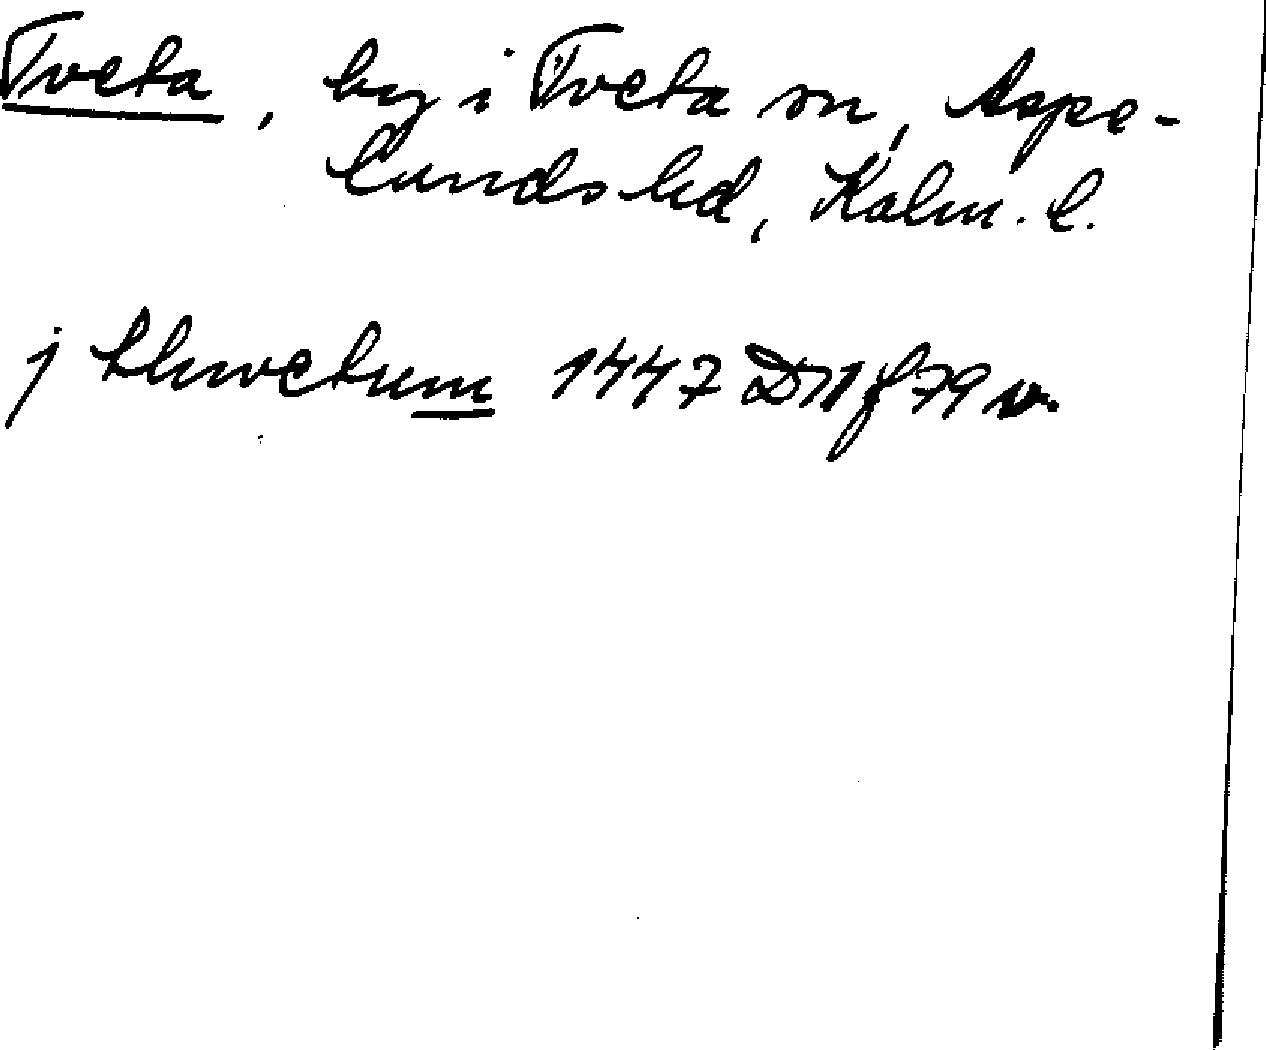 Tveta, by i Tveta sn, Aspe-
lunds hd, Kalm. l.
j thwetum 1447 D11 f 79 v.